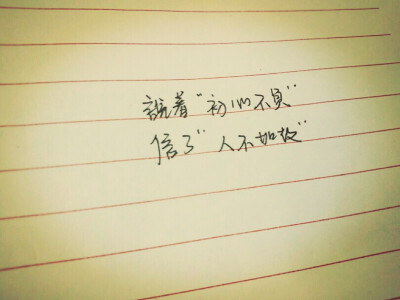 說着“初心不負”
信了“人不如故”